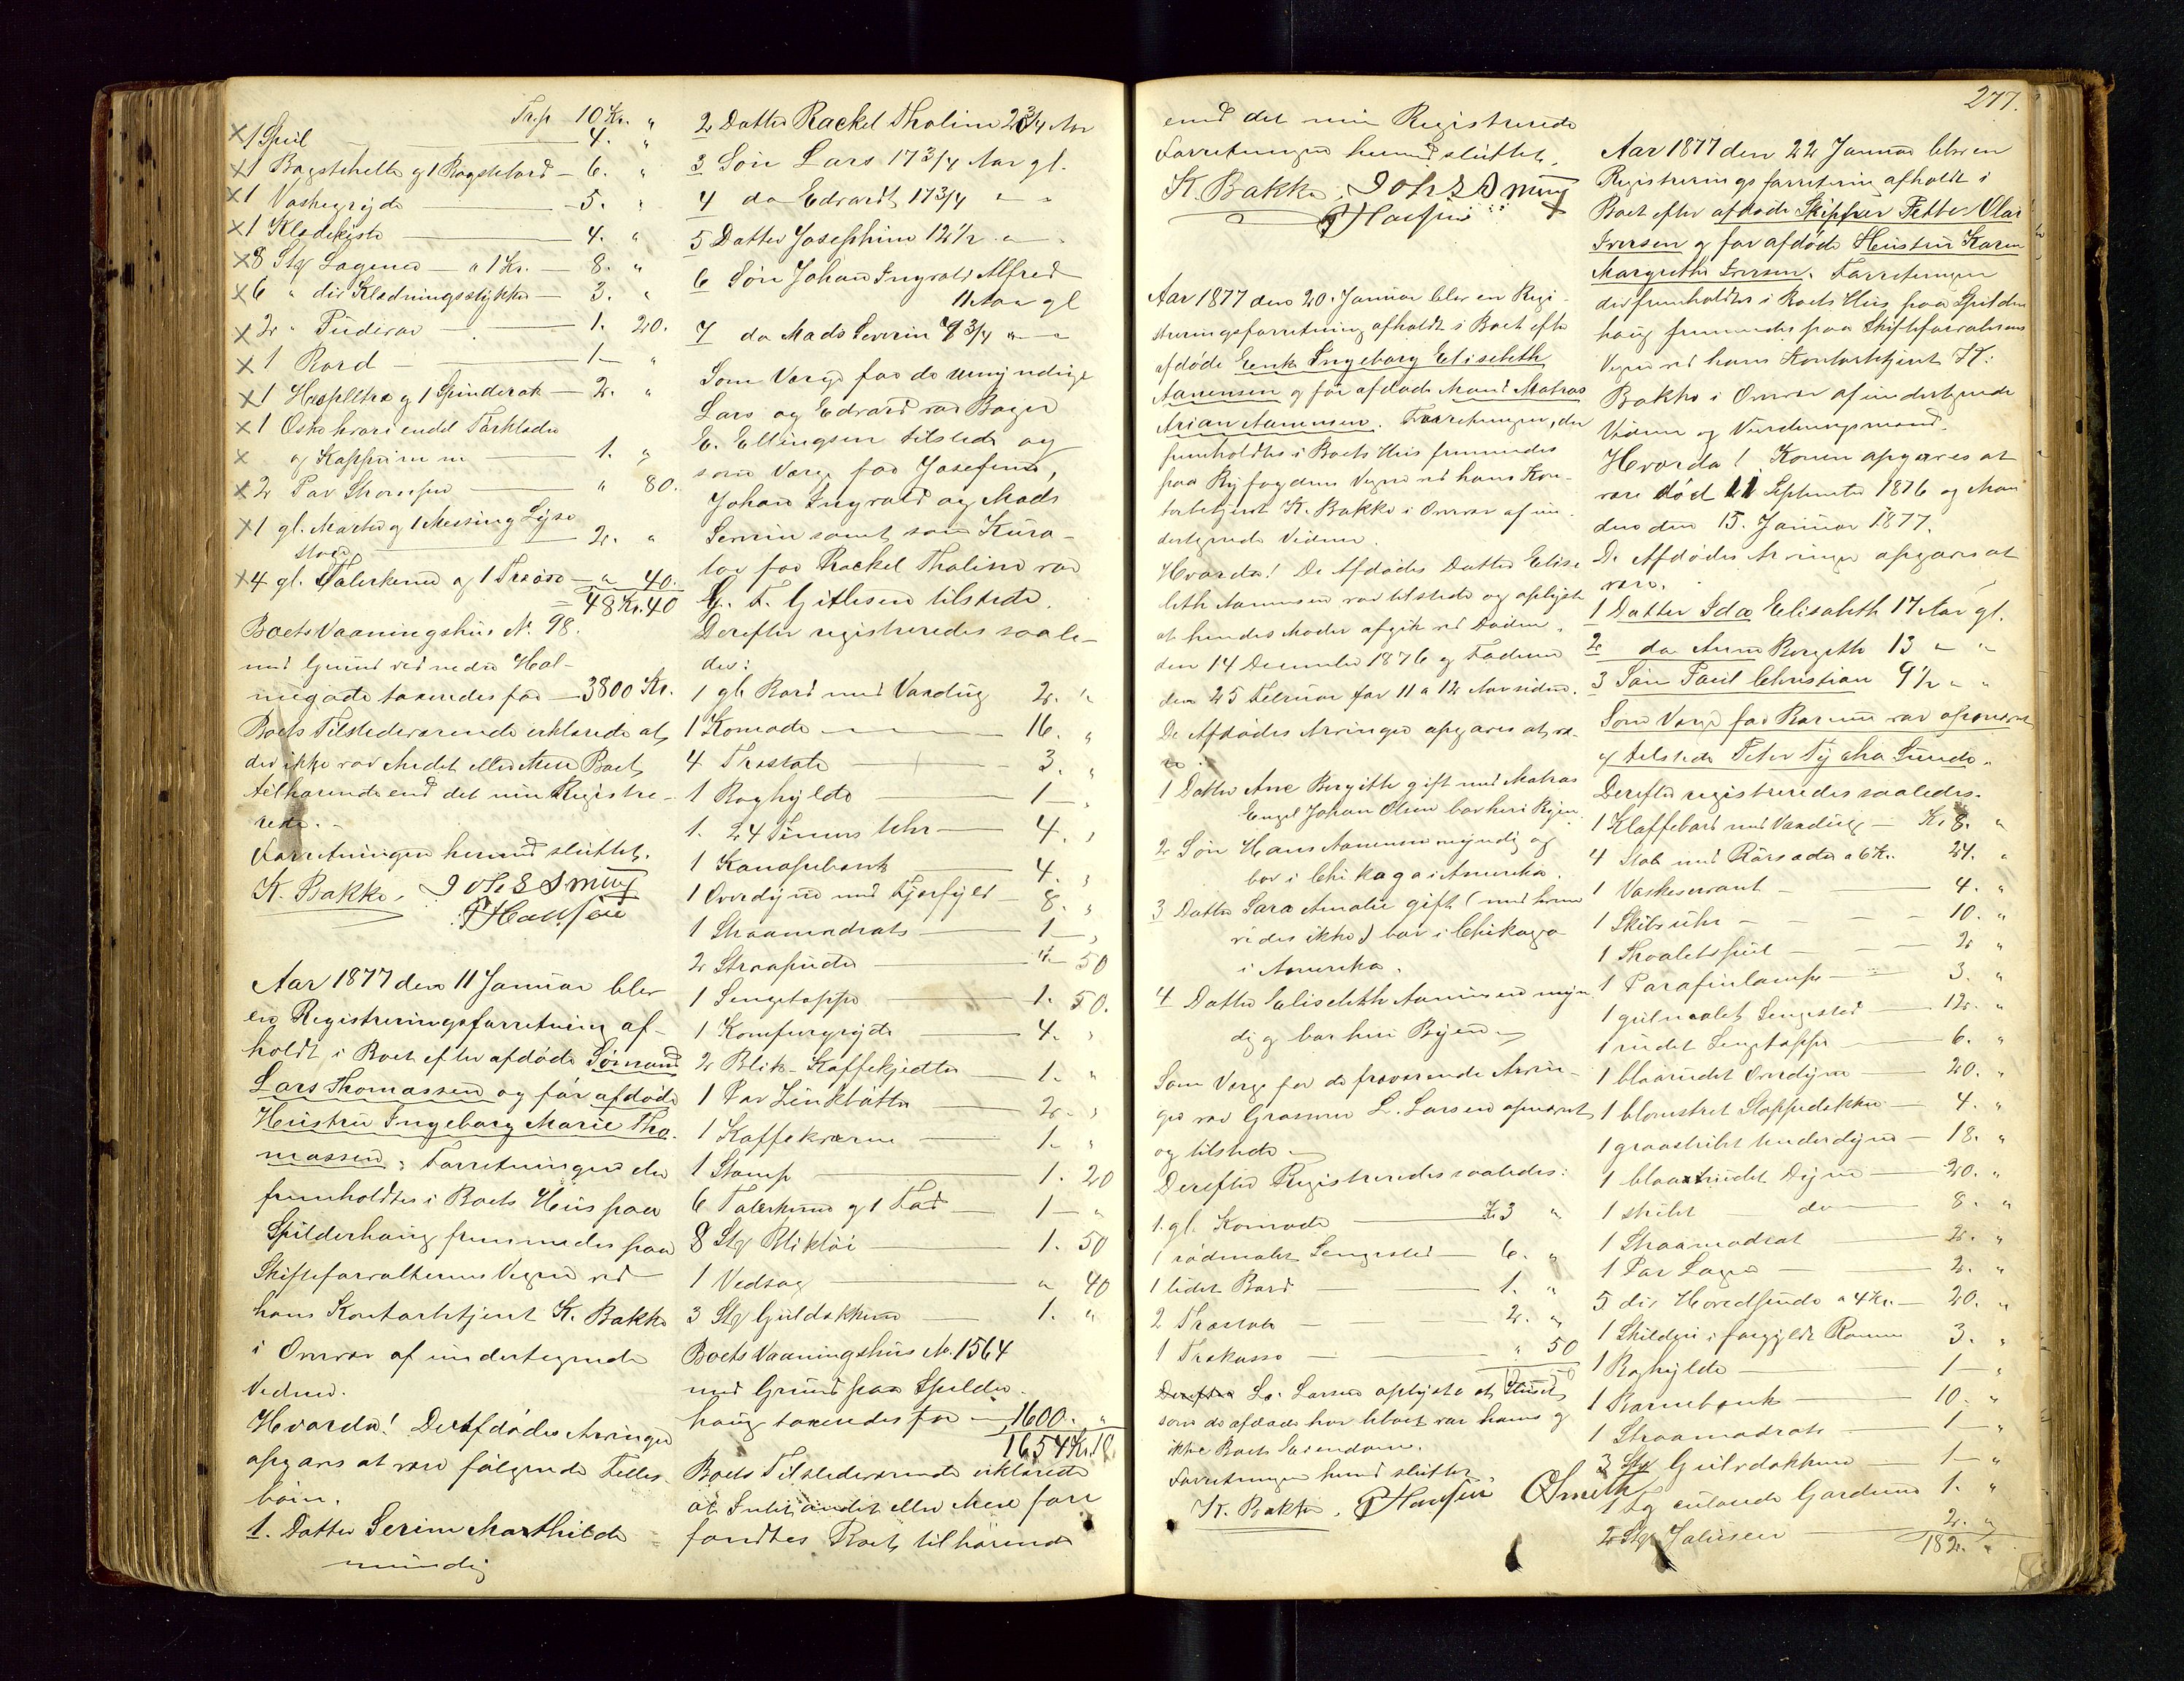 Trsp 10 Kr. "
× 1 Speil 4. "
× 1 Bagstehelle og 1 Bagstebord 6. "
× 1 Vaskegryde 5. "
× 1 Klædekiste 4. "
× 8 Stkr Lagener a 1 Kr. 8. "
× 6 " div Klædningsstykker 3. "
× 2 " Puder 1. 20.
× 1 Bord 1 "
× 1 Haspeltræ og 1 Spinderok 2. "
× 1 Eske hvori endel Tørklæder
× og 1. "
× 2 Par Strømper " 80.
× 1 gl. Morter og 1 Messing Lyse
stage 2. "
× 4 gl. Talerkener og 1 " 40.
= 48 Kr. 40
Boets Vaaningshus No. 98.
med Grund ved nedre Hol-
megade taxeredes for 3800 Kr.
Boets Tilstedeværende erklærede at
der ikke var Andet eller Mere Boet
tilhørende end det nu Registre-
rede. -
Forretningen hermed sluttet.
K. Bakke. Johs Smith
P Hansen
Aar 1877 den 11 Januar blev
en Registreringsforretning af-
holdt i Boet efter afdøde Sømand
Lars Thomassen og før afdøde
Hustru Ingeborg Marie Tho-
massen. Forretningen der
fremholdtes i Boets Hus paa
Spilderhaug fremmedes paa
Skifteforvalterens Vegne ved
hans Kontorbetjent K. Bakke
i Overvær af undertegnede
Vidner.
Hvorda! De Afdødes Arvinger
opgaves at være følgende Fælles-
børn.
1. Datter Serine Marthilde
myndig
2 Datter Rackel Tholine 23/4 Aar
3 Søn Lars 17 3/4 Aar gl.
4 do Edvardt 17 3/4 " "
5 Datter Josephine 12 1/2 " "
6 Søn Johan Ingvald Alfred
11 Aar gl
7 do Mads Severin 9 3/4 " "
Som Værge for de umyndige
Lars og Edvard var Bager
E. Ellingsen tilstede og
som Værge for Josefine,
Johan Ingvald og Mads
Severin samt som Kura-
tor for Rackel Tholine var
G. T. Gitlesen tilstede.
Derefter registreredes saale-
des:
1 gl. Bord med Voxdug 2. "
1 Komode 16. "
4 Træstole 3. "
1 Boghylde 1 "
1. 24 Timers Uhr 4. "
1 Kanapebænk 4. "
1 Overdyne med Fjerfyld 8. "
1 Straamadrats 1 "
2 Straapuder " 50
1 Sengetæppe 1. 50.
1 Komfurgryde 4. "
2 Blik-Kaffekjedler 1. "
1 Par Zinkbøtter 2. "
1 Kaffekværn 1. "
1 Stamp 1. 20
6 Talerkener og 1 Fad 1 "
8 Stkr Bliktøi 1. 50
1 Vedsag " 40
3 Stkr Guldækkener 1. "
Boets Vaaningshus No. 1564
med Grund paa Spilder-
haug taxeredes for 1600. "
1654 Kr. 10
Boets Tilstedeværende erklærede
at Intet andet eller Mere fore
fandtes Boet tilhørende
277.
end det nu Registrerede
Forretningen hermed sluttet.
K. Bakke. Johs Smith
P Hansen
Aar 1877 den 20. Januar blev en Regi-
streringsforretning afholdt i Boet efter
afdøde Enke Ingeborg Elisebeth
Aanensen og før afdøde Mand Matros
Arian Aanensen. Forretningen, der
fremholdtes i Boets Hus fremmedes
paa Byfogdens Vegne ved hans Kon-
torbetjent K. Bakke i Overvær af un-
dertegnede Vidner.
Hvorda! De Afdødes Datter Elise
beth Aanensen var tilstede og oplyste
at hendes Moder afgik ved Døden
den 14 December 1876 og Faderen
den 25 Februar for 11 a 12 Aar siden.
De Afdødes Arvinger opgaves at væ-
re:
1 Datter Ane Bergitte gift med Matros
Engel Johan Olsen bor her i Byen.
2 Søn Hans Aanensen myndig og
bor i Chikago i Amerika.
3 Datter Sara Amalie gift (med hvem
vides ikke) bor i Chikago
i Amerika.
4 Datter Elisebeth Aanensen myn
dig og bor her i Byen.
Som Værge for de fraværende Arvin-
ger var L. Larsen opnævnt
og tilstede.
Derefter Registreredes saaledes:
1. gl. Komode K 3 "
1 rødmalet Sengested 6. "
1 lidet Bord 1. "
2 Træstole 2. "
1 Trækasse " 50
12. 50
Derefter L. Larsen oplyste at Huset
som de afdøde har beboet var hans og
ikke Boets Eiendom.
Forretningen hermed sluttet.
K. Bakke. P Hansen O Smith
Aar 1877 den 22 Januar blev en
Registreringsforretning afholdt i
Boet efter afdøde Skipper Petter Olai
Iversen og før afdøde Hustru Karen
Margrethe Iversen. Forretningen
der fremholdtes i Boets Hus paa Spilder
haug fremmedes paa Skifteforvalterens
Vegne ved hans Kontorbetjent K:
Bakke i Overvær af undertegnede
Vidner og Vurderingsmænd.
Hvorda! Konen opgaves at
være død 11 September 1876 og Man
den den 15. Januar 1877.
De Afdødes Arvinger opgaves at
være.
1 Datter Ida Elisabeth 17 Aar gl.
2 do Anne Bergitte 13 " "
3 Søn Paul Christian 9 1/2 " "
Som Værge for Børnene var opnævnt
og tilstede Peter Tycho Sunde.
Derefter registreredes saaledes.
1 Klaffebord med Voxdug Kr 8. "
4 Stole med Rørsæder a 6 Kr. 24. "
1 Vaskeservant 4. "
1 Skibsuhr 10. "
1 Thoaletspeil 2 "
1 Parafinlampe 3. "
1 gulmalet Sengested 12. "
1 rudet Sengetæppe 6. "
1 blaarudet Overdyne 20. "
1 blomstret Stoppedække 4. "
1 graastribet Underdyne 18. "
1 blaarudet Dyne 20. "
1 stribt do 8. "
1 Straamadrat 2. "
1 Par Lagen 2. "
5 div Hovedpuder a 4 Kr. 20. "
1 Skilderi i forgyldt Ramme 3. "
1 Boghylde 1 "
1 Barnebænk 10. "
1 Straamadrats 1 "
3 Stkr Gulvdækkener 1 "
1 Fag Gardiner 1. "
2 Stkr Jalusier 2. "
182. "